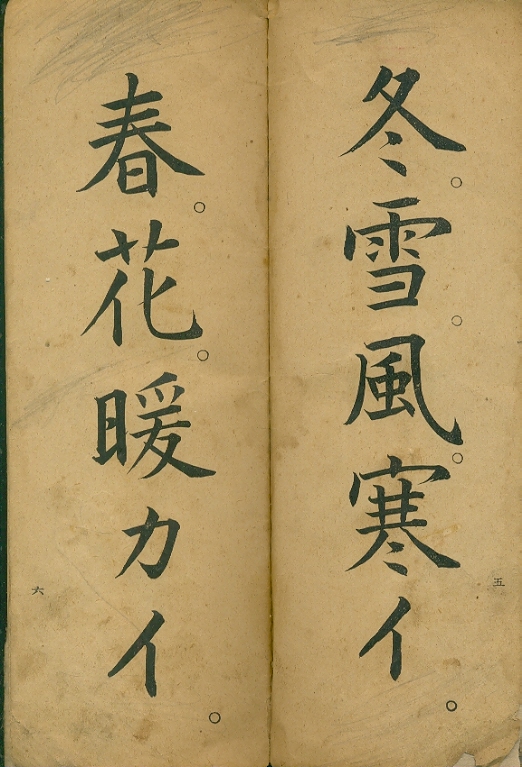 冬。雪。風。寒イ。
五
春。花。暖カイ。
六